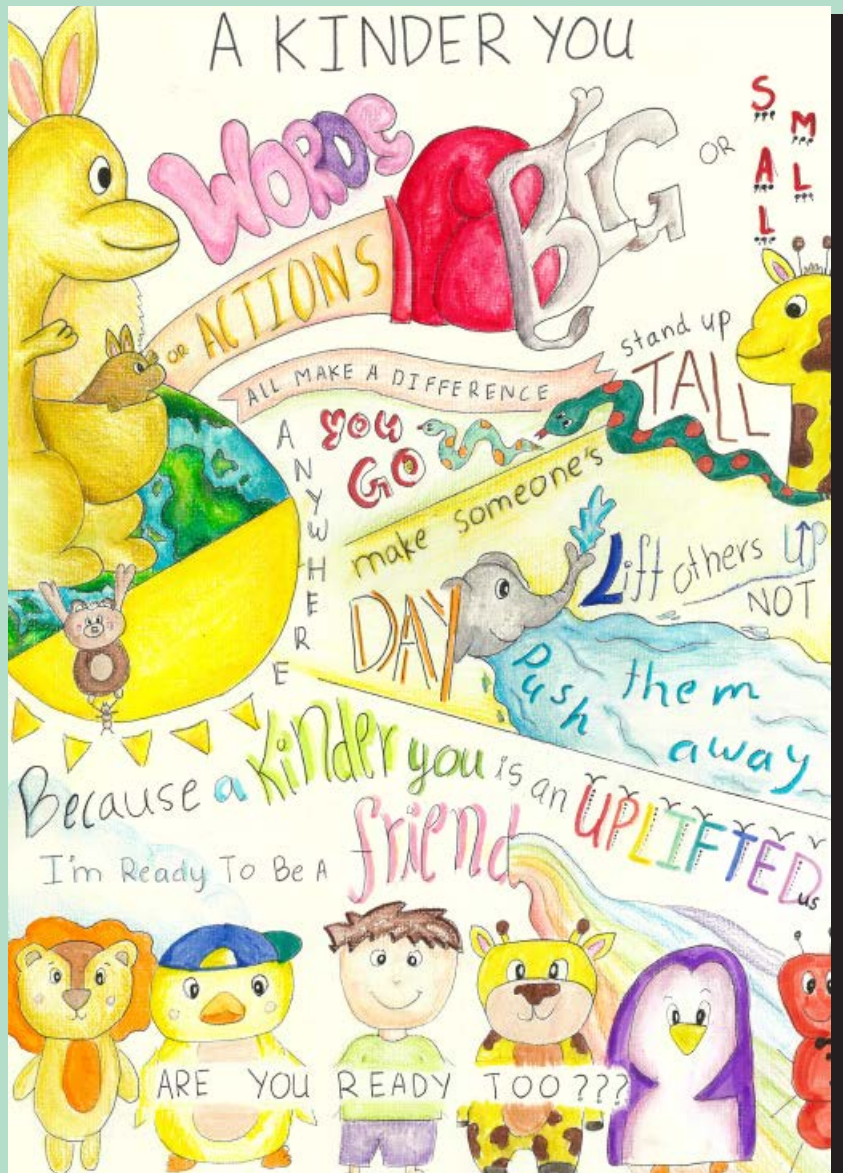 A KINDER YOU
WORDS
OR ACTIONS
BIG
OR
SMALL
ALL MAKE A DIFFERENCE
stand up
TALL
ANYWHERE
YOU
GO
make someone's
DAY
Lift others UP
NOT
Push them
away
Because a kinder you is an UPLIFTED us
I'm Ready To Be A friend
ARE YOU READY TOO???